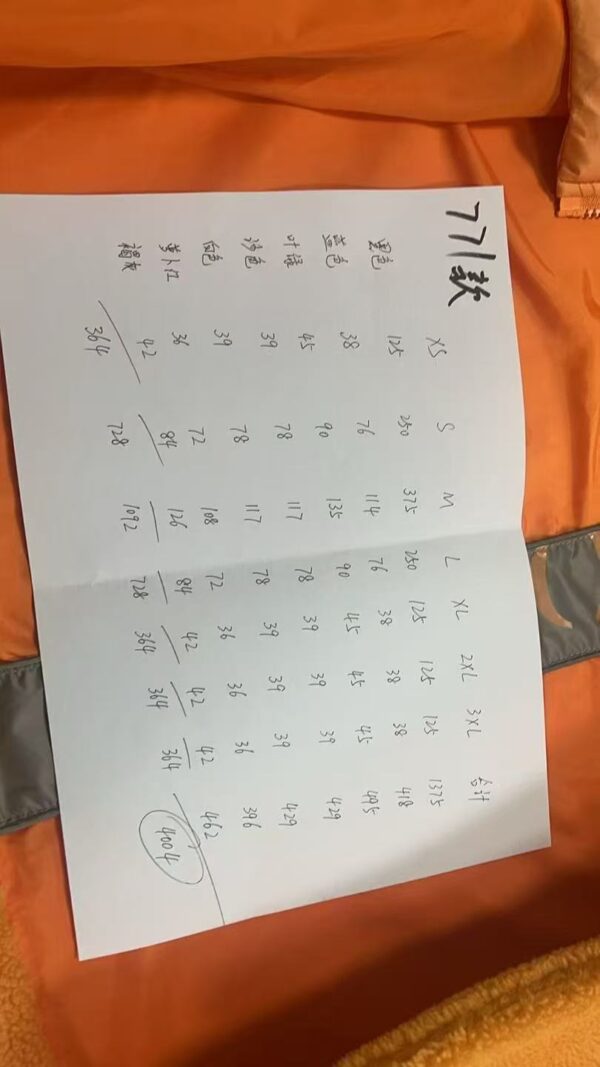 771款
XS S M L XL 2XL 3XL 合计
黑色 125 250 375 250 125 125 125 1375
蓝色 38 76 114 76 38 38 38 418
叶绿 45 90 135 90 45 45 45 495
色 39 78 117 78 39 39 39 429
白色 39 78 117 78 39 39 39 429
萝卜红 36 72 108 72 36 36 36 396
42 84 126 84 42 42 42 462
364 728 1092 728 364 364 364 4004